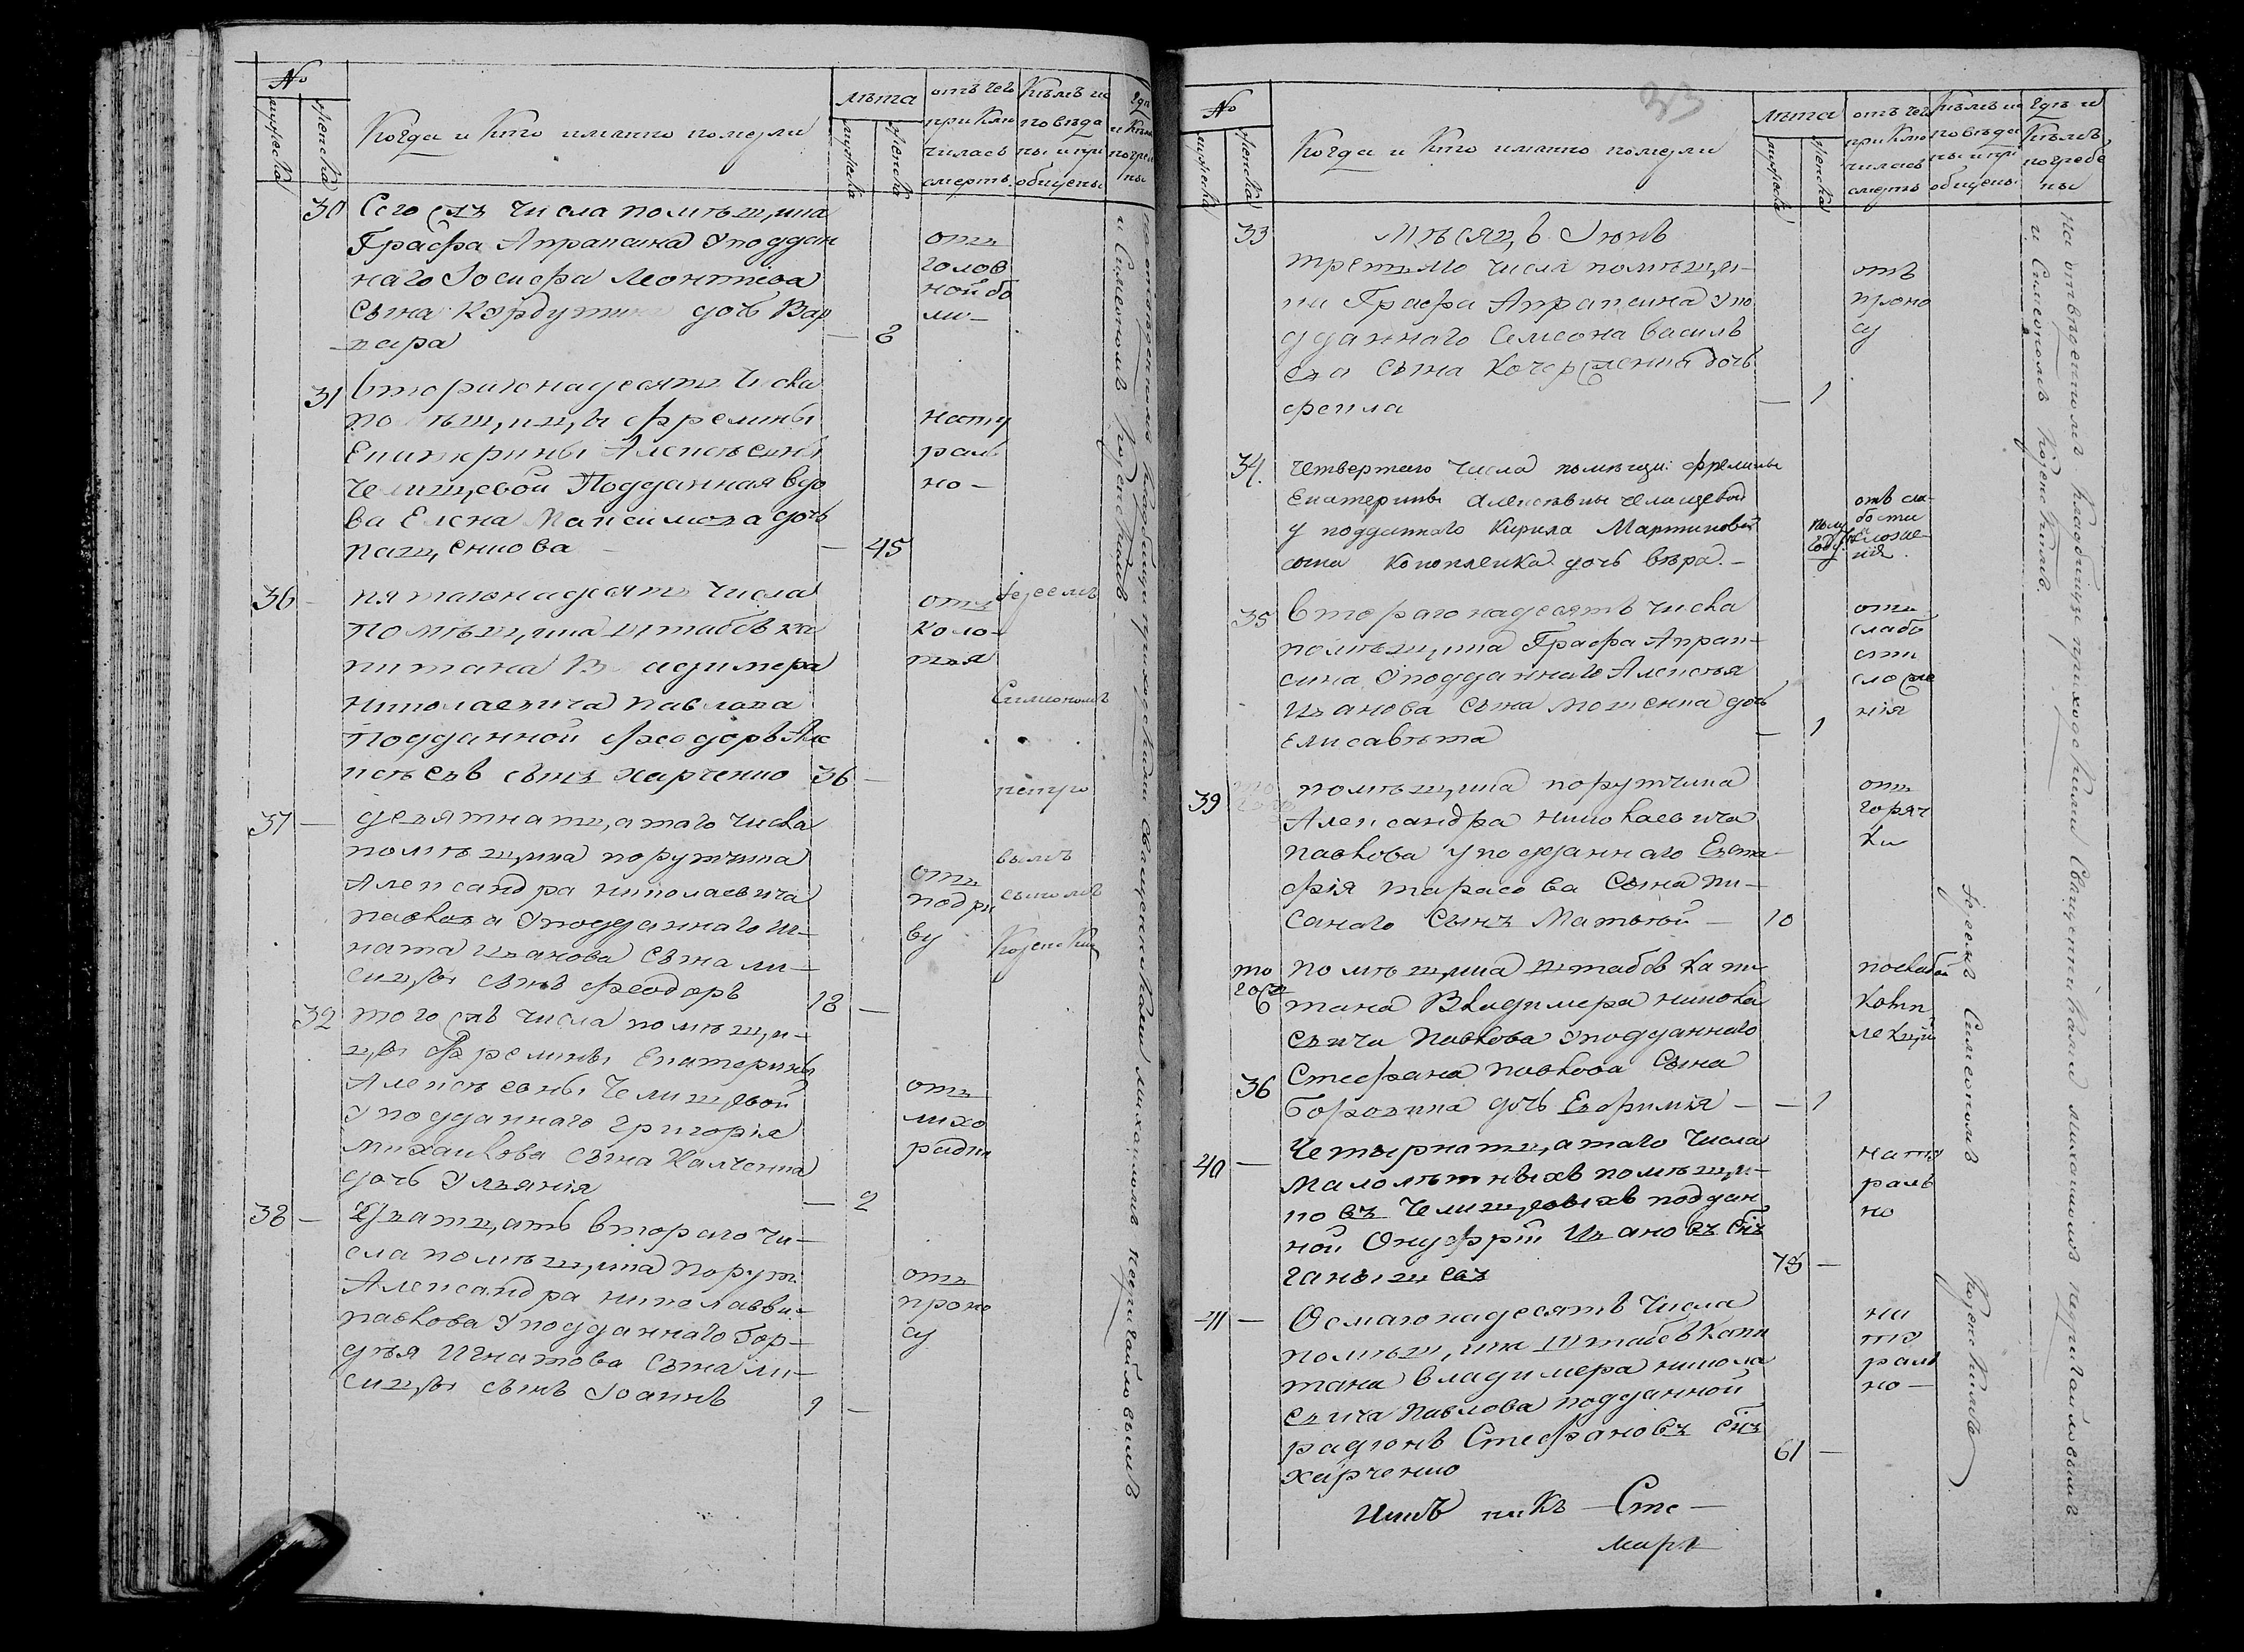 №
мужеска
женска
Когда и Кто имянно померли
лѣта
мужеска
женска
отъ чего
приклю
чилась
смерть
Кѣмъ ис
повѣда
ны и при
общены
и Кѣмъ
погребе
ны
30
Сего жъ числа помѣщика
Графа Апраксина Уподдан
наго Иосифа Леонтіева
сына дочь Вар
вара
— 8
отъ
голов
ной бо
ли —
31
Второгонадесять числа
помѣщицы фрелины
Екатерины Алексѣевны
Челищевой Подданная вдо
ва Елена Максимова дочь
— 45
нату
раль
но —
36 —
пятагонадесять числа
помѣщика штабсъ ка
питана Владимера
Николаевича Павлова
подданной Феодоръ Але
ксѣевъ сынъ Харченко
36 —
отъ
коло
тья
Іереемъ
Симеономъ
петро
вымъ
сыномъ
37 —
девятнатцатаго числа
помѣщика порутчика
Александра Николаевича
Павлова Уподданнаго Иг—
ната Иванова сына ли—
сицы сынъ Феодоръ
18 —
отъ
подры
ву
32
того жъ числа помѣщи—
цы фрелины Екатерины
Алексѣевны Челищевой
Уподданнаго Григорія
Михайлова сына Калченка
дочь Ульянія
— 2
отъ
лихо
радки
38 —
Дватцать втораго чи—
сла помѣщика порутч
Александра Николаеви—
Павлова Уподданнаго Гор—
дѣя Игнатова сына ли—
сицы сынъ Іоаннъ
9 —
отъ
поно
су
33
№
мужеска
женска
Когда и Кто имянно померли
лѣта
мужеска
женска
отъ чего
приклю
чилась
смерть
Кѣмъ ис
повѣда
ны и при
общены
Гдѣ и
Кѣмъ
погребе
ны
33
Мѣсяцъ Июнь
третьяго числа помѣщи—
ка Графа Апраксина Упо
дданнаго Самсона Василь
ева сына дочь
фекла
— 1
отъ
поно
су
34.
четвертаго числа помѣщи: фрелины
Екатерины Алексѣвны Челищевой
у подданнаго Кирила Мартиновой
сына Коноплянка дочь вѣра. —
полу
году
отъ сла
бости
сложе
нія.
35
Второгонадесять числа
помѣщика Графа Апрак—
сина Уподданнаго Алексѣя
Иванова сына дочь
Елисавѣта
— 1
отъ
слабо
сти
сложе
нія
39
помѣщика порутчика
Александра Николаевича
Павлова уподданнаго Евста—
фія Тарасова сына Пи—
санаго сынъ Матвѣй —
10
отъ
горяч
ки
того ж
помѣщика штабсъ капи
тана Владимера Никола
евича Павлова Уподданнаго
Стефана Павлова сына
Боровика дочь Евфимія —
36
— 1
послабой
комп
лекціи
40 —
Четырнатцатаго числа
Малолѣтныхъ помѣщи—
ковъ Челищевыхъ поддан
ной Онуфрій Ивановъ снъ
78 —
нату
раль
но
41 —
Осмагонадесять числа
помѣщика Штабсъ Капи
тана Владимера Никола
евича Павлова подданной
Радіонъ Стефановъ снъ
Харченко
61 —
на
ту
раль
но —
Іереемъ Симеономъ
на отвѣденномъ кладбищѣ приходскими Священниками Михаиломъ
и Симеономъ